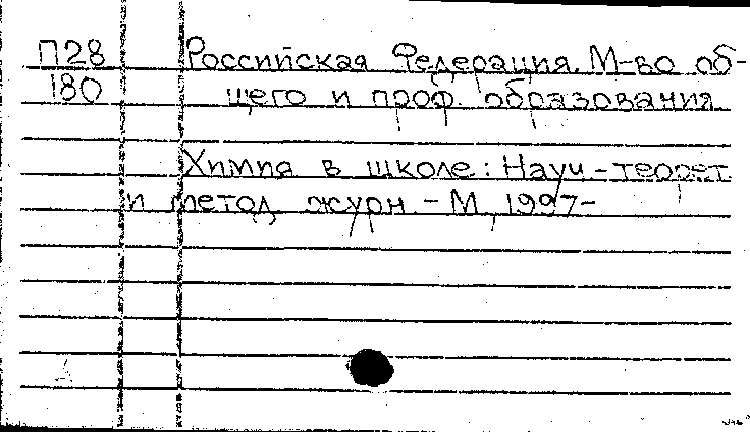 П28
180
Российская Федерация. М-во об-
щего и проф. образования.
Химия в школе: Науч.-теорет.
и метод. журн. - М., 1997-
А